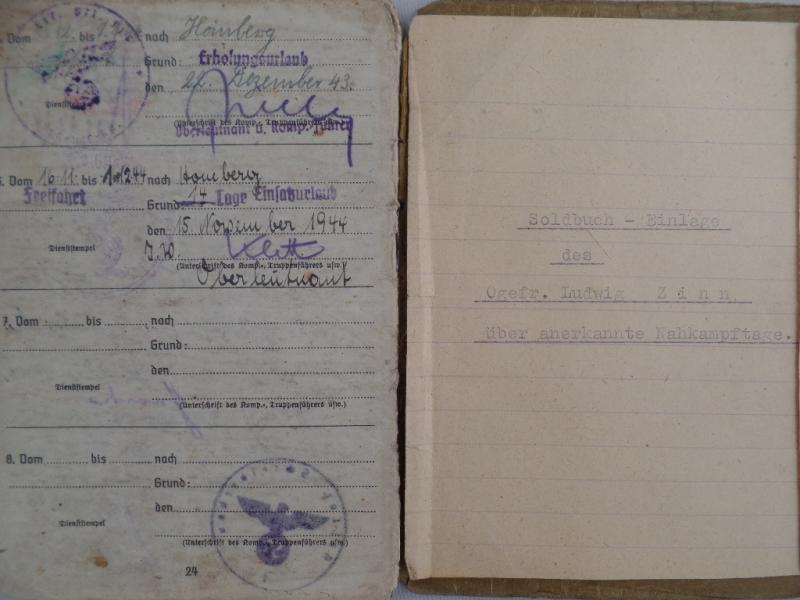 Vom bis nach Homberg
Grund: Erholungsurlaub
den 22. Dezember 43.
Dienststempel
(Unterschrift des Komp.-, Truppenführers usw.)
Oberleutnant u. Komp. Führer
6. Vom 16.11. bis 1.12.44 nach Homberg
Freifahrt
Grund: 14 Tage Einsatzurlaub
den 15. November 1944
Dienststempel
J.V.
(Unterschrift des Komp.-, Truppenführers usw.)
Oberleutnant
7. Vom bis nach
Grund:
den
Dienststempel
(Unterschrift des Komp.-, Truppenführers usw.)
8. Vom bis nach
Grund:
den
Dienststempel
(Unterschrift des Komp.-, Truppenführers usw.)
24
Soldbuch - Einlage
des
Ogefr. Ludwig Z i n n
über anerkannte Nahkampftage.